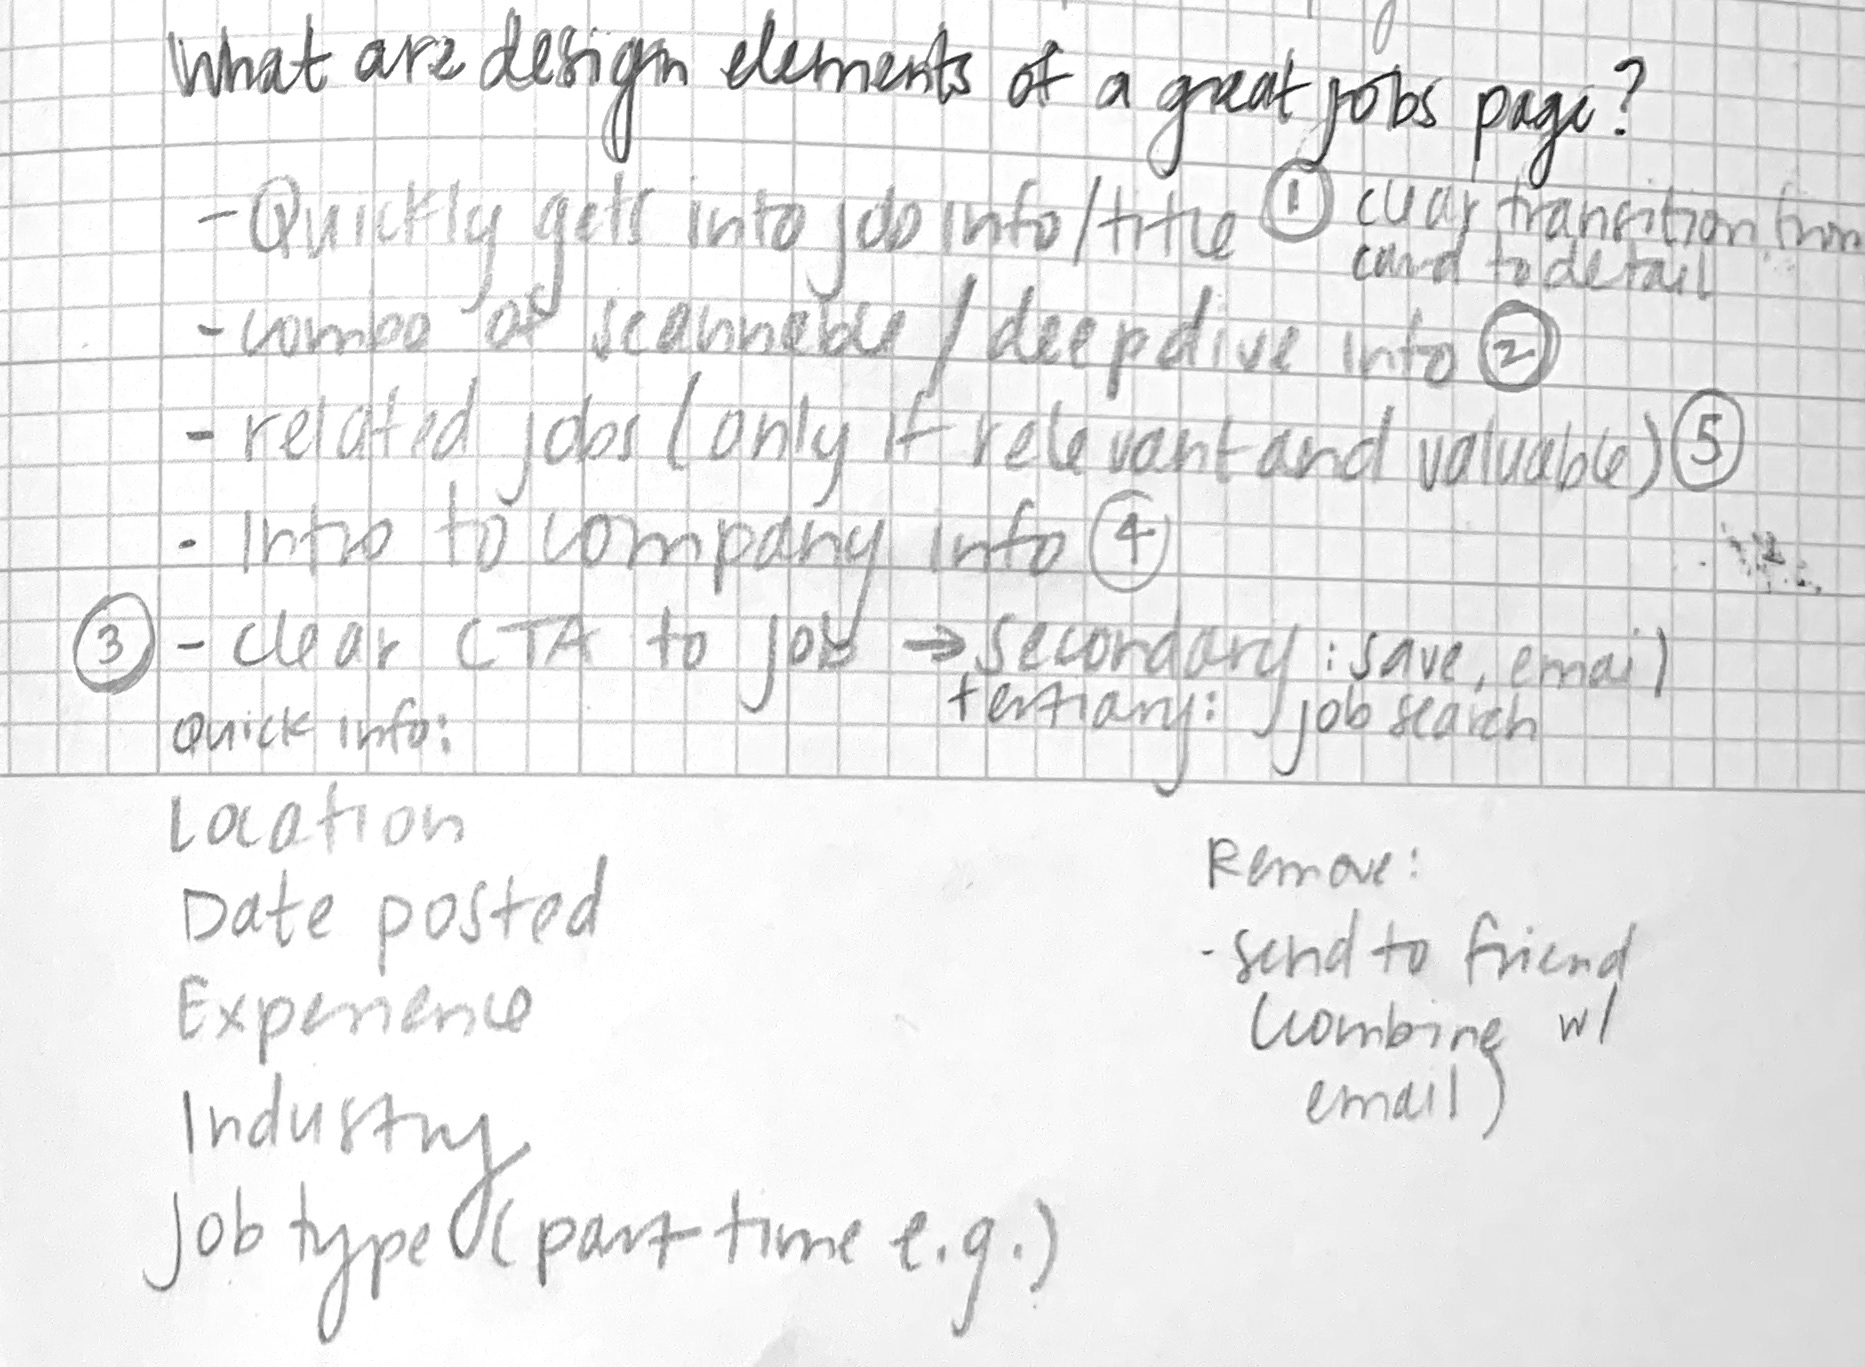 What are design elements of a great jobs page?
- Quickly gets into job info/title ① clear transition from
card to detail
- combo of scannable / deep dive info ②
- related jobs (only if relevant and valuable) ⑤
- Intro to company info ④
③ - clear CTA to job → secondary: save, email
tertiary: job search
Quick info:
Location
Date posted
Experience
Industry
Job type (part time e.g.)
Remove:
- send to friend
(combine w/
email)